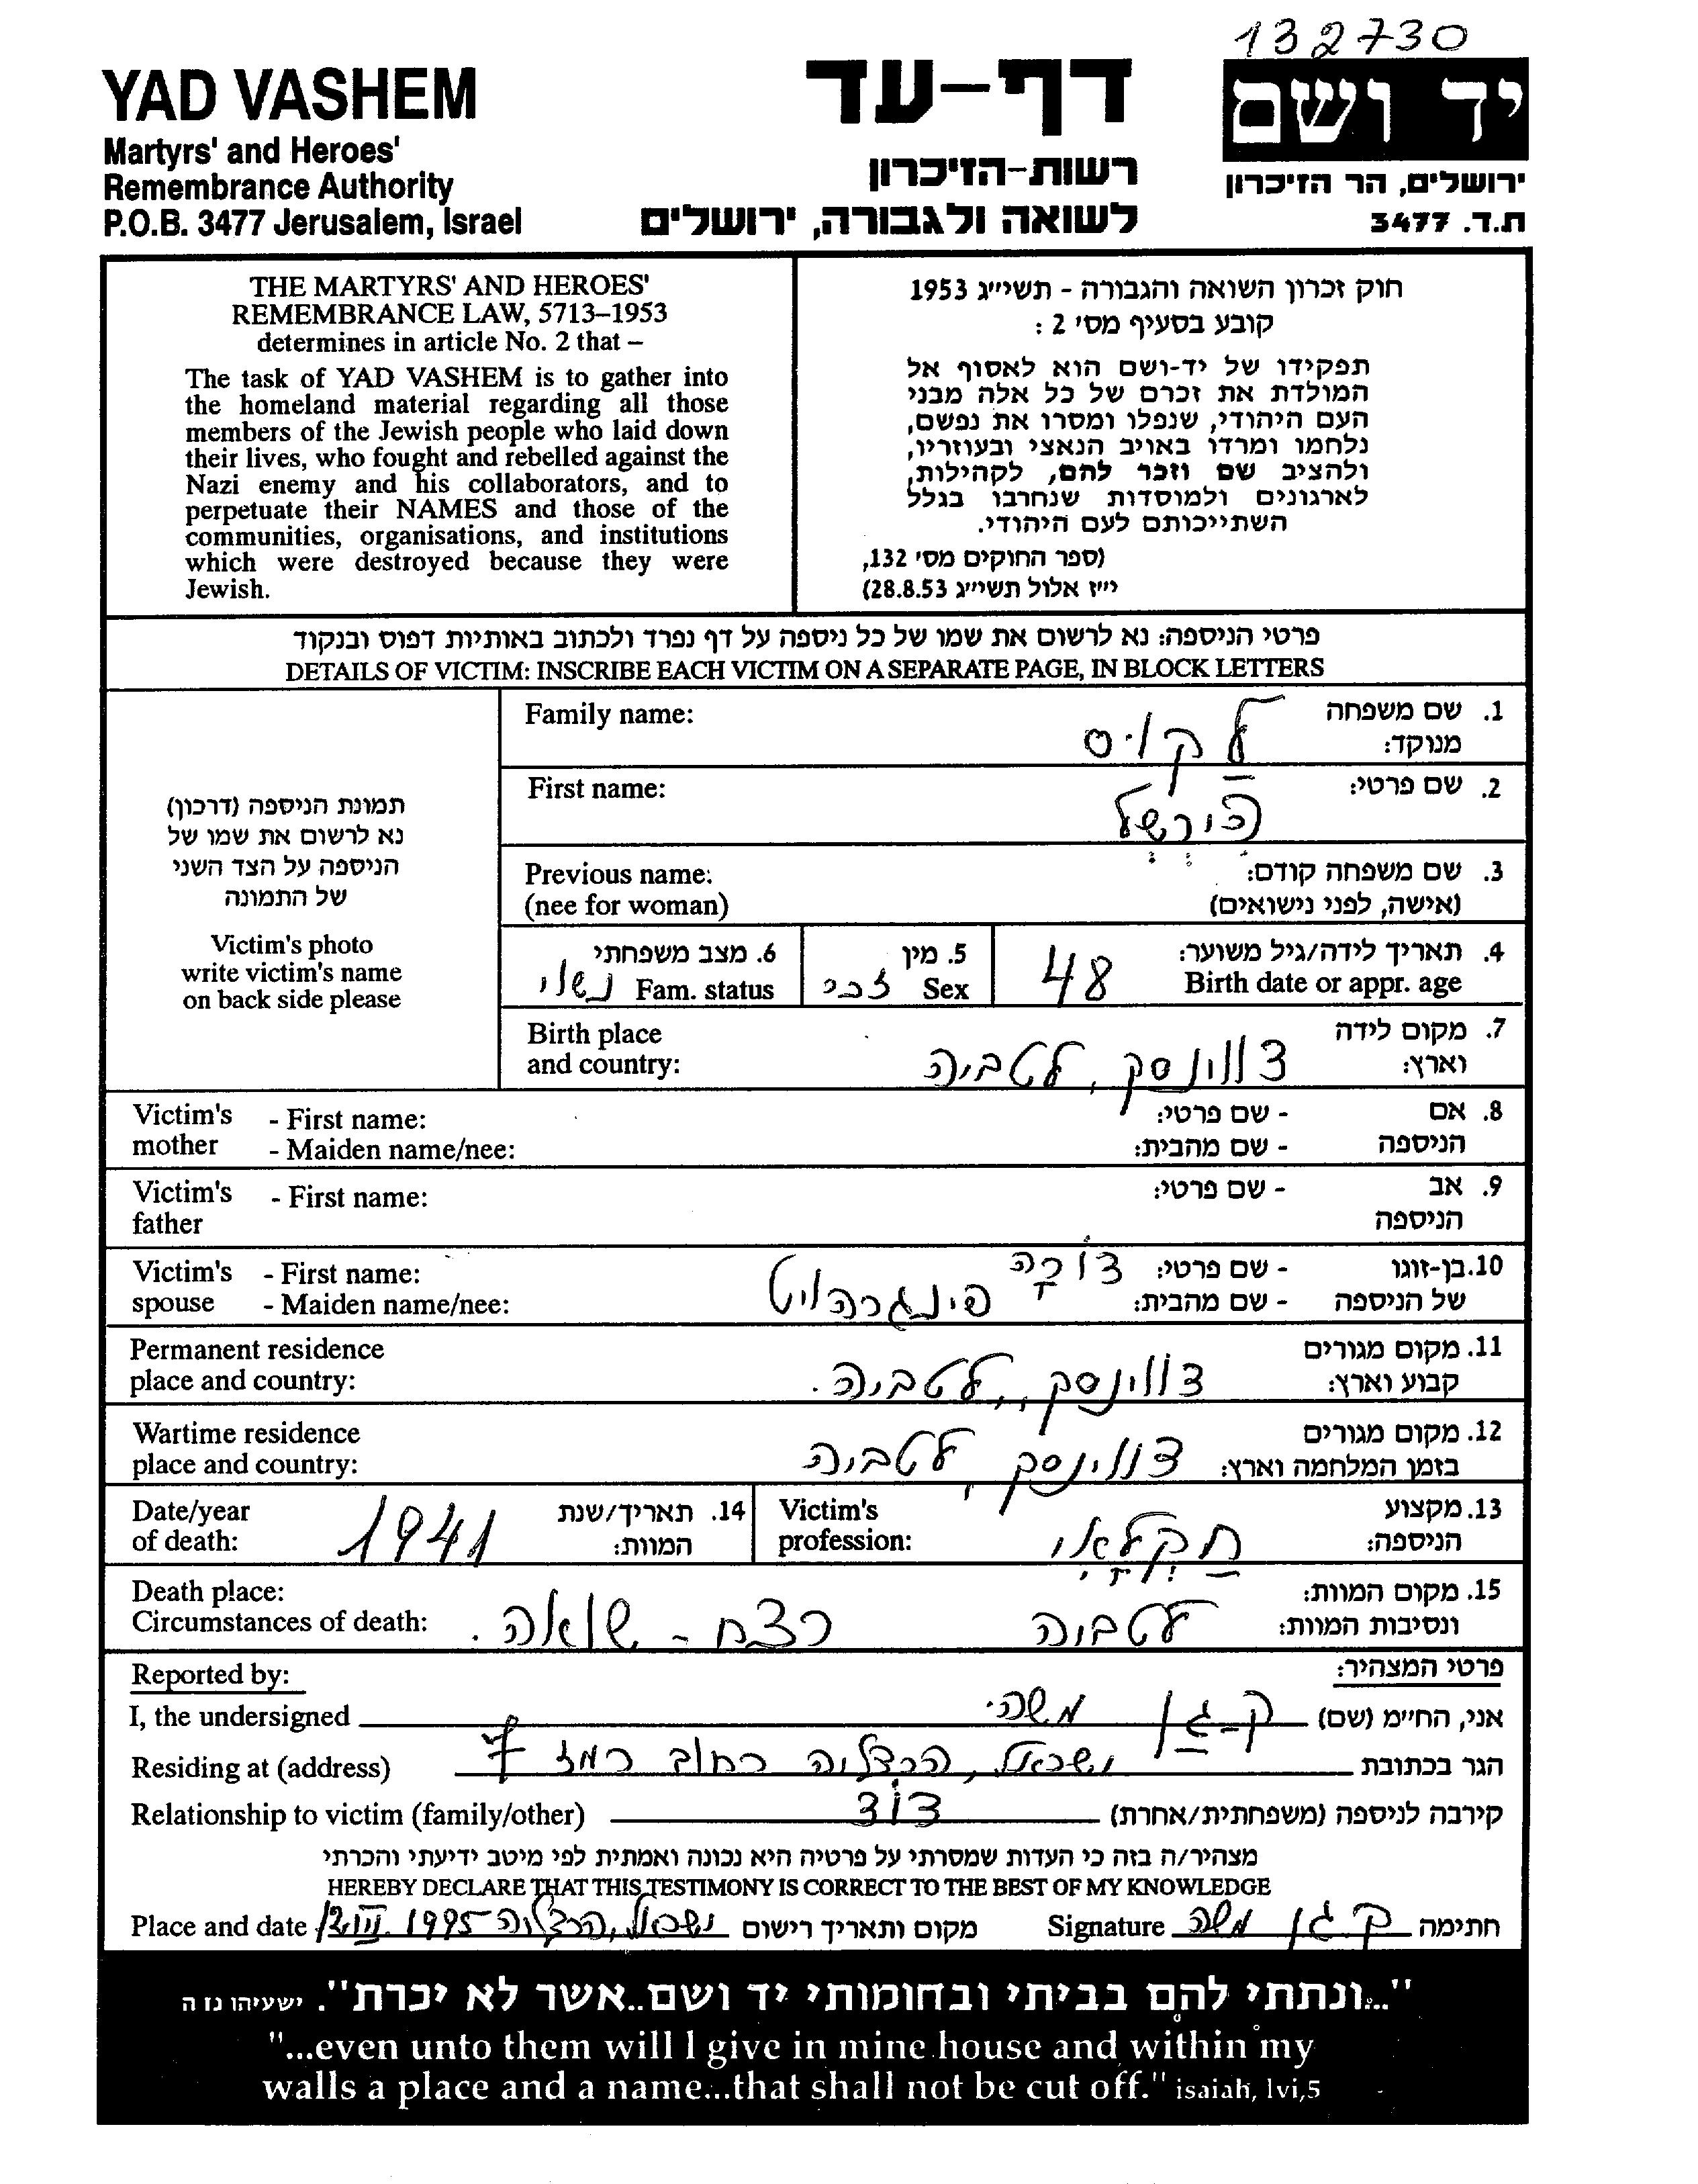 132730
YAD VASHEM
Martyrs' and Heroes'
Remembrance Authority
P.O.B. 3477 Jerusalem, Israel
דף-עד
רשות-הזיכרון
לשואה ולגבורה, ירושלים
יד ושם
ירושלים, הר הזיכרון
ת.ד. 3477
THE MARTYRS' AND HEROES'
REMEMBRANCE LAW, 5713–1953
determines in article No. 2 that –
The task of YAD VASHEM is to gather into
the homeland material regarding all those
members of the Jewish people who laid down
their lives, who fought and rebelled against the
Nazi enemy and his collaborators, and to
perpetuate their NAMES and those of the
communities, organisations, and institutions
which were destroyed because they were
Jewish.
חוק זכרון השואה והגבורה - תשי״ג 1953
קובע בסעיף מס׳ 2 :
תפקידו של יד-ושם הוא לאסוף אל
המולדת את זכרם של כל אלה מבני
העם היהודי, שנפלו ומסרו את נפשם,
נלחמו ומרדו באויב הנאצי ובעוזריו,
ולהציב שם וזכר להם, לקהילות,
לארגונים ולמוסדות שנחרבו בגלל
השתייכותם לעם היהודי.
(ספר החוקים מס׳ 132,
י״ז אלול תשי״ג 28.8.53)
פרטי הניספה: נא לרשום את שמו של כל ניספה על דף נפרד ולכתוב באותיות דפוס ובנקוד
DETAILS OF VICTIM: INSCRIBE EACH VICTIM ON A SEPARATE PAGE, IN BLOCK LETTERS
תמונת הניספה (דרכון)
נא לרשום את שמו של
הניספה על הצד השני
של התמונה
Victim's photo
write victim's name
on back side please
1. שם משפחה
מנוקד: לקויס
Family name:
2. שם פרטי: הירשל
First name:
3. שם משפחה קודם:
(אישה, לפני נישואים)
Previous name:
(nee for woman)
4. תאריך לידה/גיל משוער:
Birth date or appr. age 48
5. מין
Sex זכר
6. מצב משפחתי
Fam. status נשוי
7. מקום לידה
וארץ: דווינסק, לטביה
Birth place
and country:
8. אם
הניספה
- שם פרטי:
- שם מהבית:
Victim's
mother
- First name:
- Maiden name/nee:
9. אב
הניספה
- שם פרטי:
Victim's
father
- First name:
10. בן-זוגו
של הניספה
- שם פרטי: דורה
- שם מהבית:
Victim's
spouse
- First name:
- Maiden name/nee:
11. מקום מגורים
קבוע וארץ: דווינסק, לטביה.
Permanent residence
place and country:
12. מקום מגורים
בזמן המלחמה וארץ: דווינסק, לטביה
Wartime residence
place and country:
13. מקצוע
הניספה: חקלאי
Victim's
profession:
14. תאריך/שנת
המוות: 1941
Date/year
of death:
15. מקום המוות:
ונסיבות המוות: לטביה רצח - שואה.
Death place:
Circumstances of death:
פרטי המצהיר:
Reported by:
אני, החי״מ (שם) קגן משה.
I, the undersigned
הגר בכתובת ישראל, הרצליה רחוב רמז 7
Residing at (address)
קירבה לניספה (משפחתית/אחרת) דוד
Relationship to victim (family/other)
מצהיר/ה בזה כי העדות שמסרתי על פרטיה היא נכונה ואמתית לפי מיטב ידיעתי והכרתי
HEREBY DECLARE THAT THIS TESTIMONY IS CORRECT TO THE BEST OF MY KNOWLEDGE
חתימה קגן משה Signature
מקום ותאריך רישום ישראל, הרצליה 12.III.1995 Place and date
"...ונתתי להם בביתי ובחומותי יד ושם..אשר לא יכרת". ישעיהו נו ה
"...even unto them will I give in mine house and within my
walls a place and a name...that shall not be cut off." isaiah, lvi,5